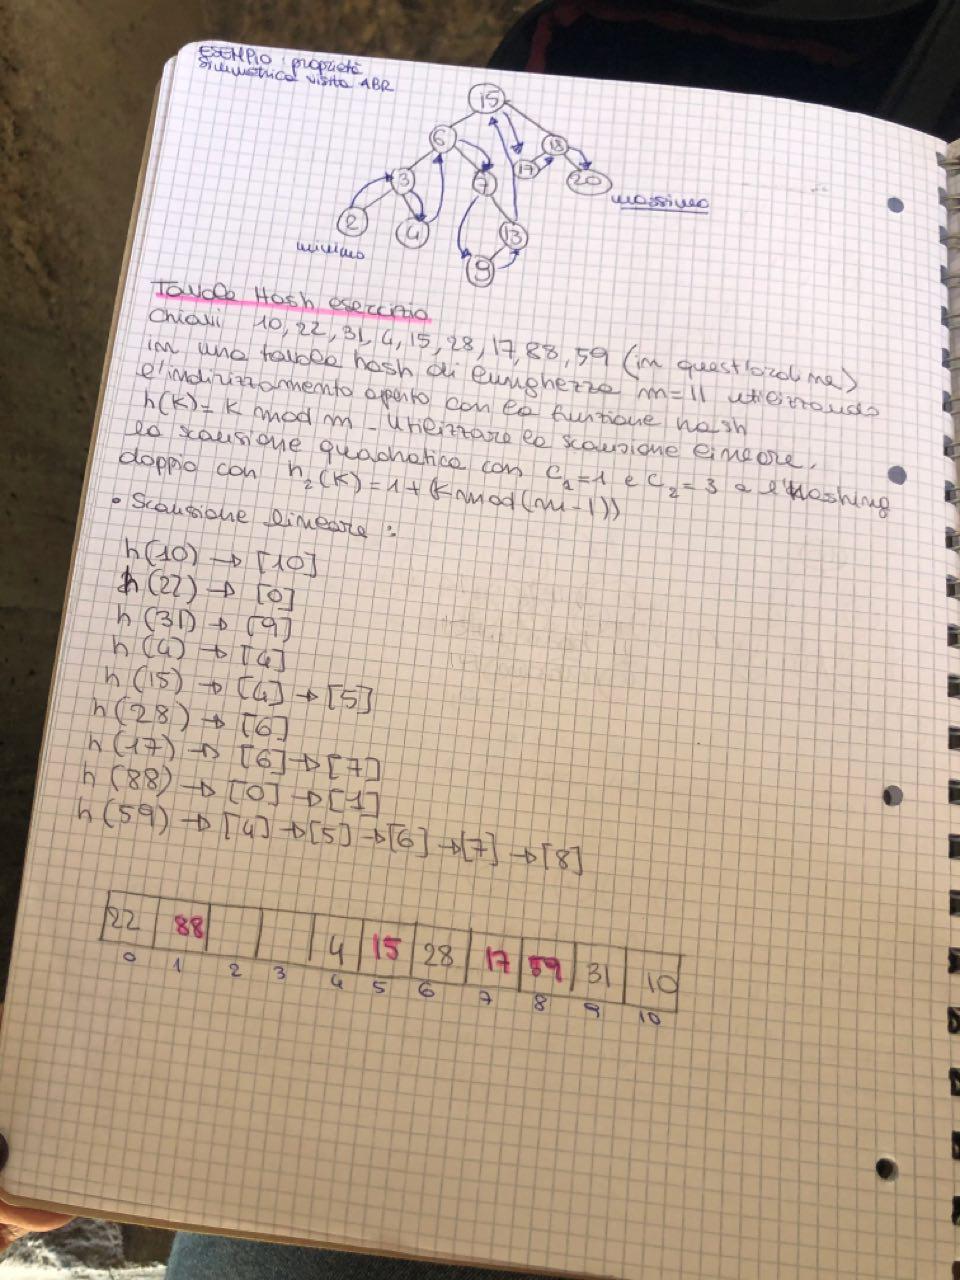 ESEMPIO proprietà
simmetrica visita ABR
15
6
18
3
7
17
20
2
4
13
9
massimo
minimo
Tavole Hash esercizio
Chiavi 10, 22, 31, 4, 15, 28, 17, 88, 59 (in quest'ordine)
in una tavola hash di lunghezza m=11 utilizzando
l'indirizzamento aperto con la funzione hash
h(K)= K mod m - Utilizzare la scansione lineare,
la scansione quadratica con C1=1 e C2=3 e l'hashing
doppio con h2(K)=1+(K mod(m-1))
• Scansione lineare:
h(10) → [10]
h(22) → [0]
h(31) → [9]
h(4) → [4]
h(15) → [4] → [5]
h(28) → [6]
h(17) → [6] → [7]
h(88) → [0] → [1]
h(59) → [4] → [5] → [6] → [7] → [8]
22 88 4 15 28 17 59 31 10
0 1 2 3 4 5 6 7 8 9 10